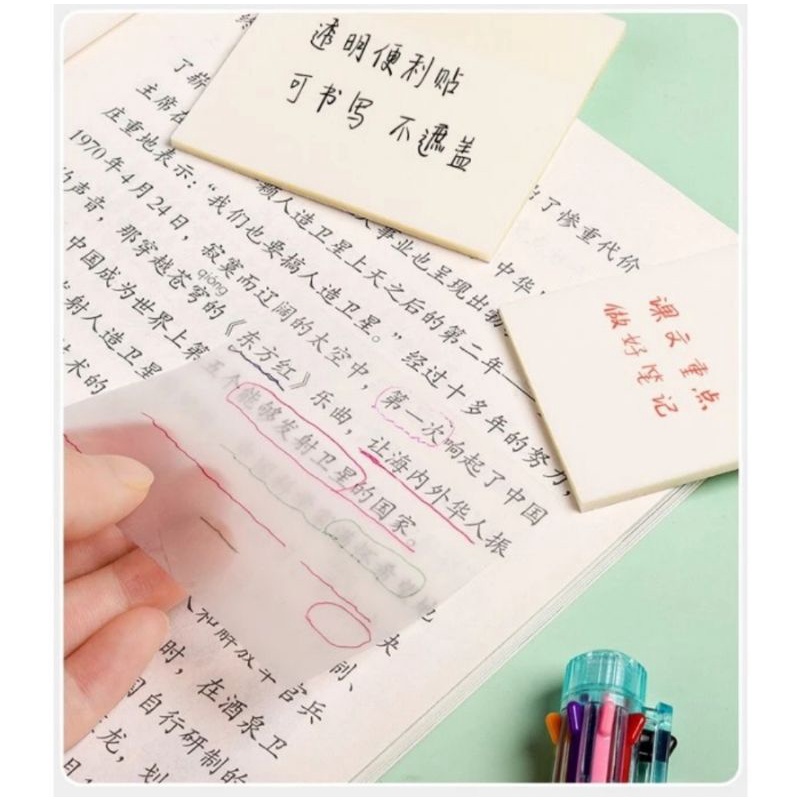 透明便利贴
可书写 不遮盖
课文重点
做好笔记
了惨重代价
主席在
庄重地表示：“我们也要搞人造卫星。”经过十多年的努力，
颗人造卫星上天之后的第二年
事业也呈现出勃
中华
1970年4月24日，寂寞而辽阔的太空中，第一次响起了中国
qióng
的声音，那穿越苍穹的《东方红》乐曲，让海内外华人振
中国成为世界上第
五个能够发射卫星的国家。
发射人造卫星
技术的
和解放军官兵
时，在酒泉卫
自行研制的
龙，划